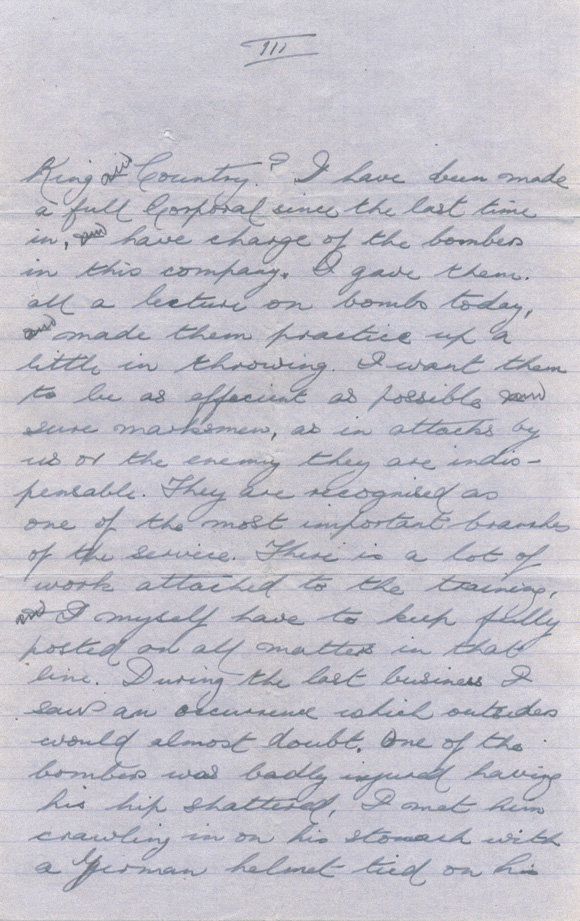 III
King and Country? I have been made
a full Corporal since the last time
in, and have charge of the bombers
in this company. I gave them.
all a lecture on bombs today,
and made them practice up a
little in throwing. I want them
to be as effecient as possible and
sure marksmen, as in attacks by
us or the enemy they are indis-
pensable. They are recognised as
one of the most important branches
of the service. There is a lot of
work attached to the training,
and I myself have to keep fully
posted on all matters in that
line. During the last business I
saw an occurence which outsiders
would almost doubt. One of the
bombers was badly injured having
his hip shattered, I met him
crawling in on his stomach with
a German helmet tied on his